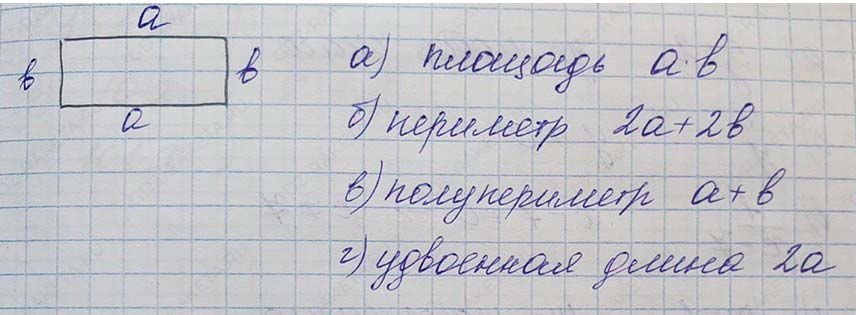 a
в в
a
а) площадь a·в
б) периметр 2a+2в
в) полупериметр a+в
г) удвоенная длина 2a